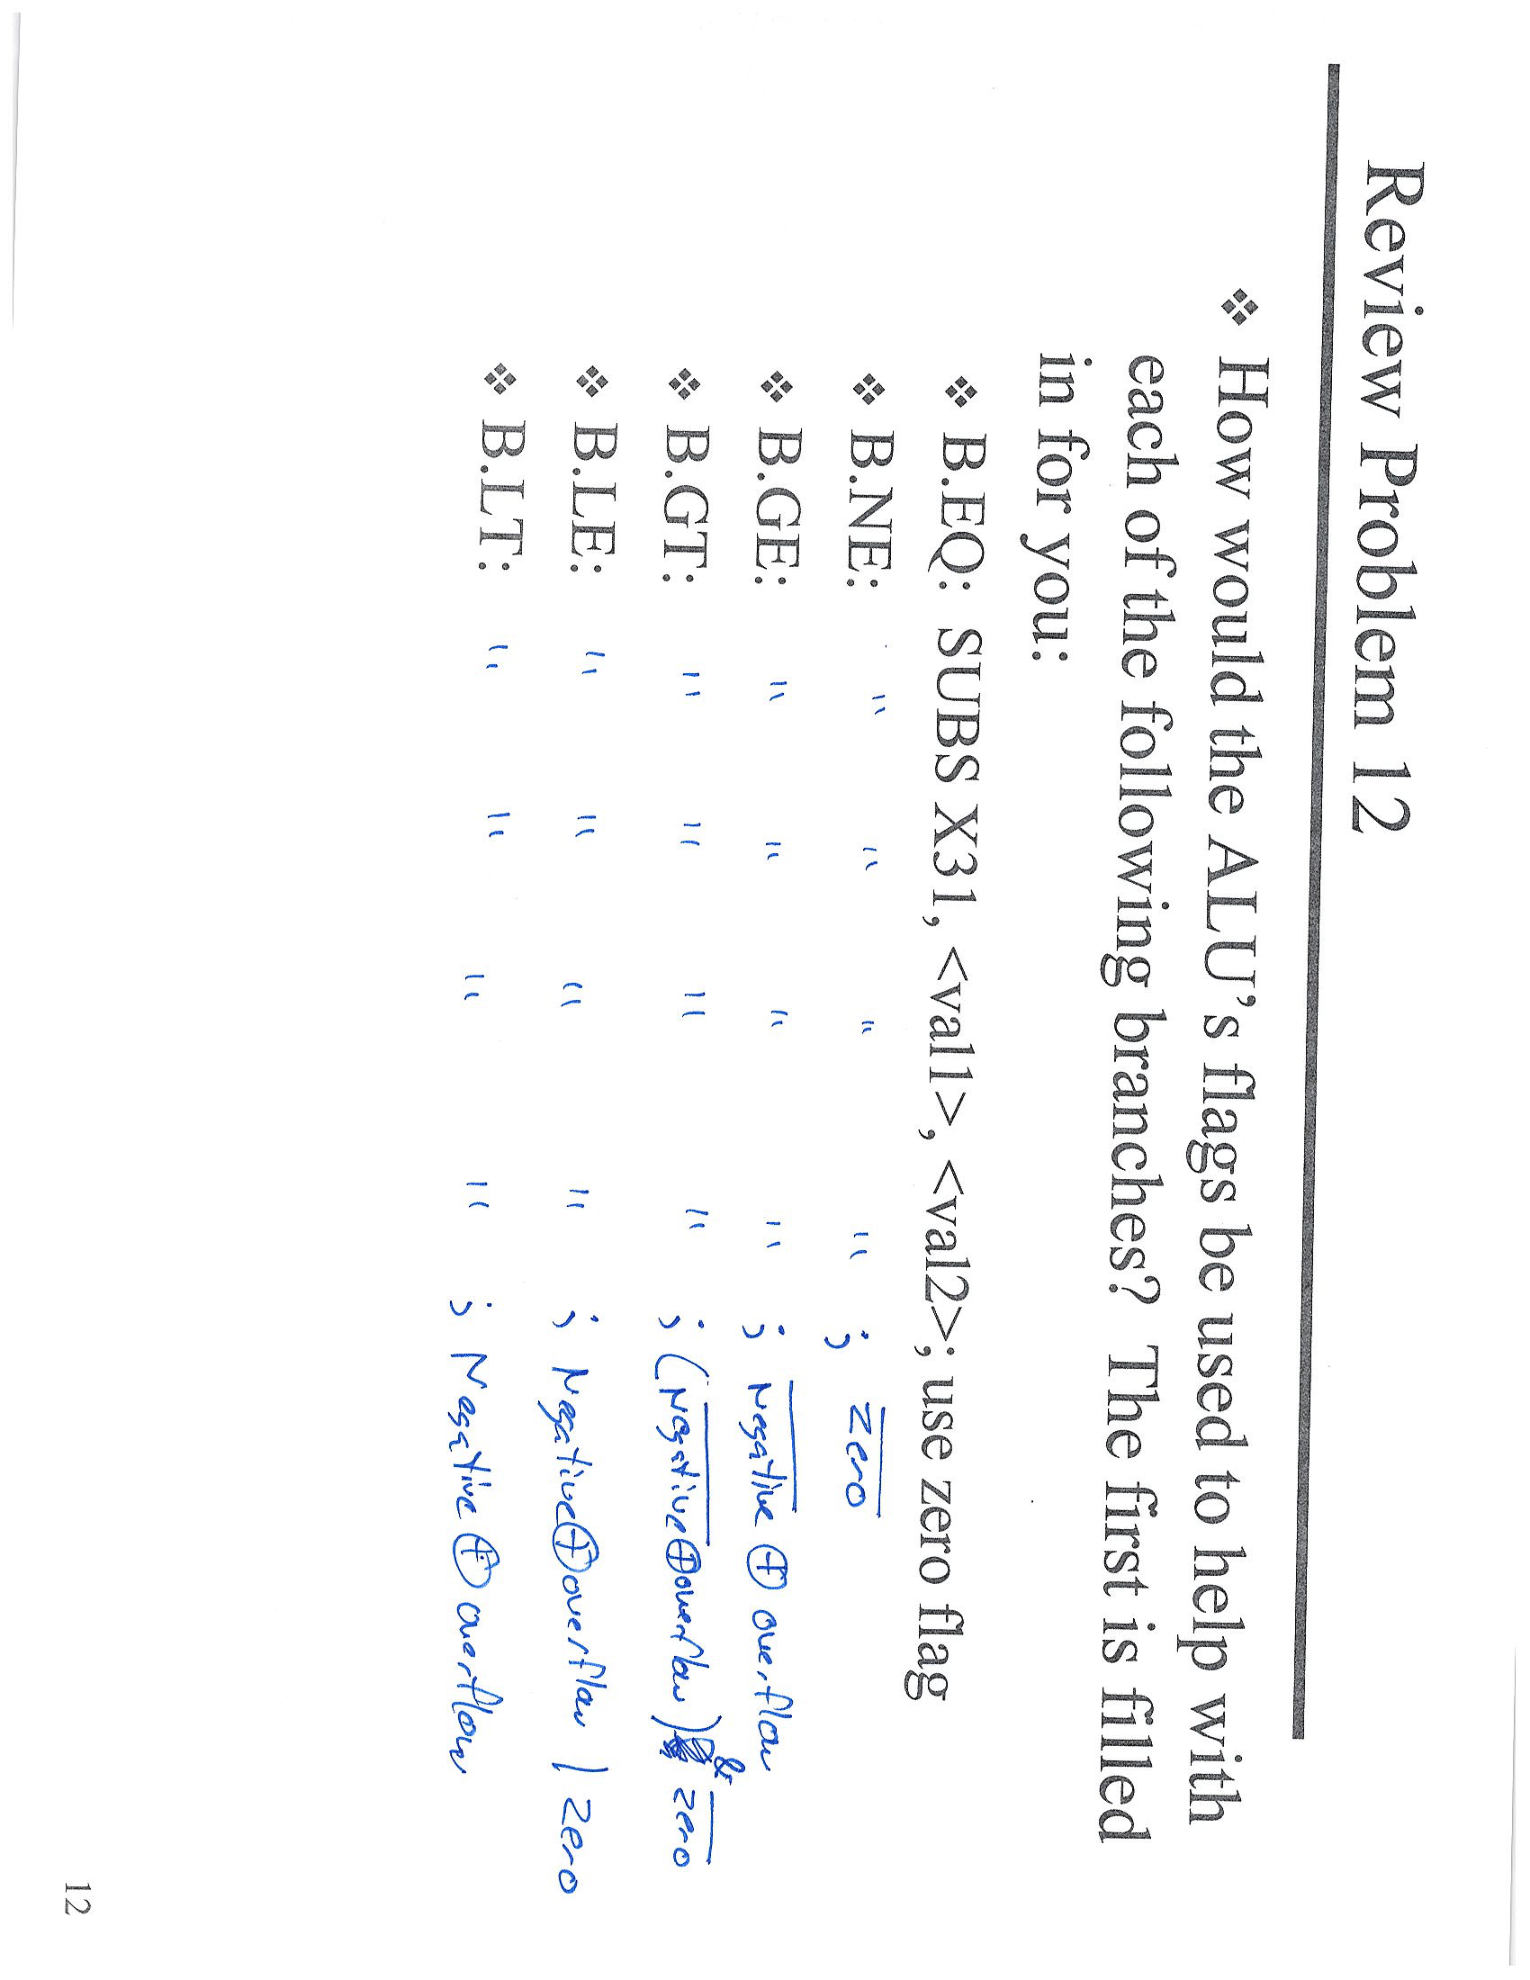 Review Problem 12
❖ How would the ALU's flags be used to help with
each of the following branches? The first is filled
in for you:
❖ B.EQ: SUBS X31, <val1>, <val2>; use zero flag
❖ B.NE: " " " " ; Z̅e̅r̅o̅
❖ B.GE: " " " " ; N̅e̅g̅a̅t̅i̅v̅e̅ ⊕ overflow
❖ B.GT: " " " " ; (N̅e̅g̅a̅t̅i̅v̅e̅ ⊕ overflow) & Z̅e̅r̅o̅
❖ B.LE: " " " " ; Negative ⊕ overflow | Zero
❖ B.LT: " " " " ; Negative ⊕ overflow
12